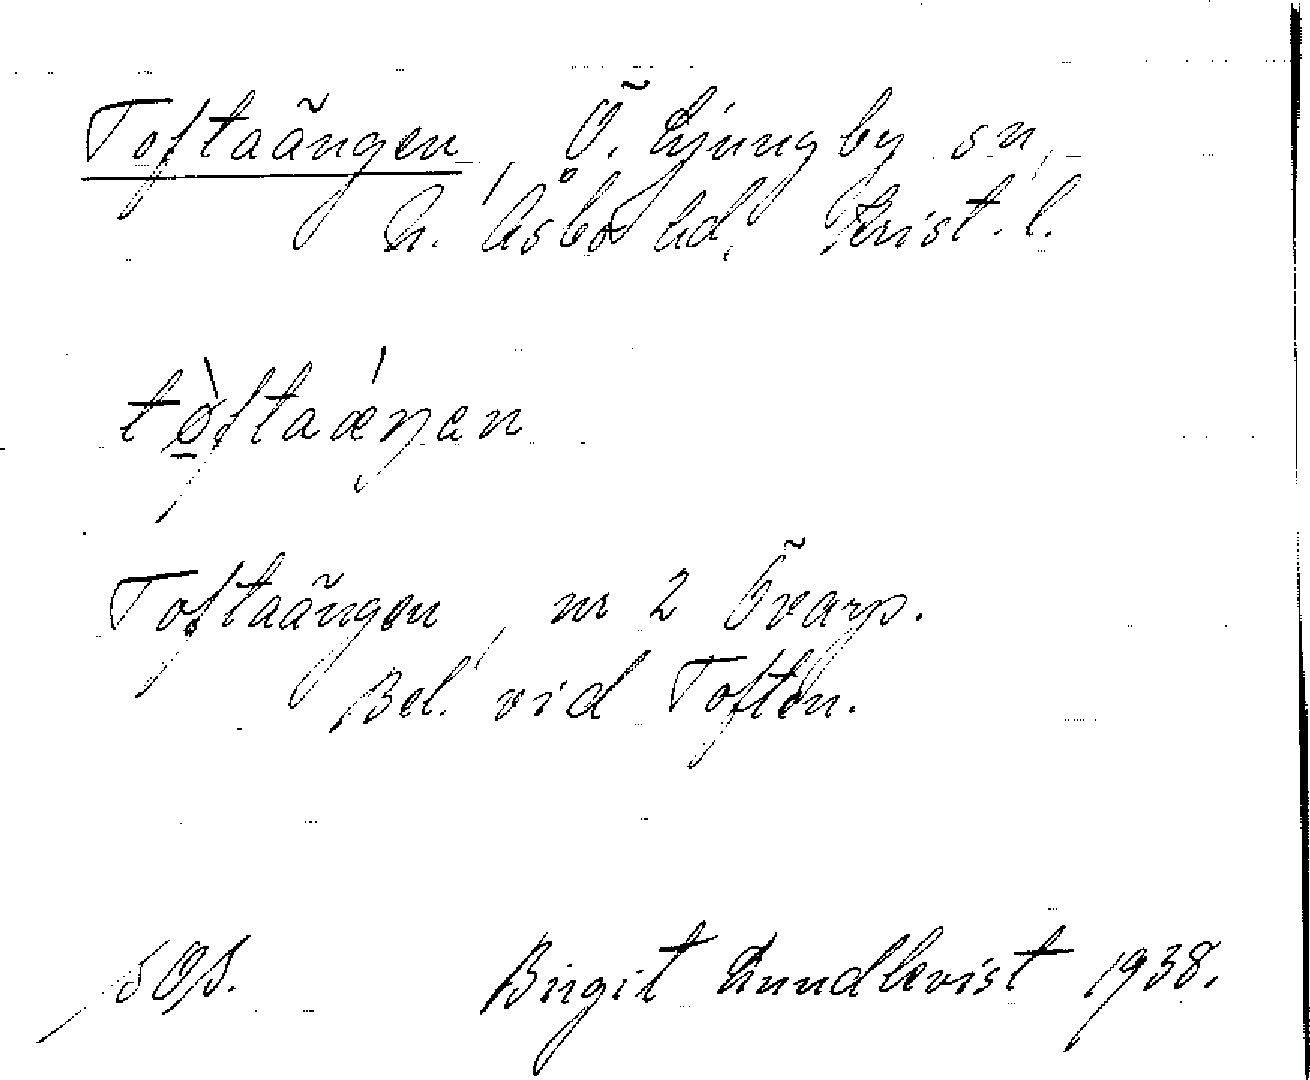 Toftaängen, Ö. Ljungby sn,
N. Åsbo hd, Krist. l.
tò̲ftaǽŋan
Toftaängen, nr 2 Övarp.
Bel. vid Toften.
Birgit Lundkvist 1938.